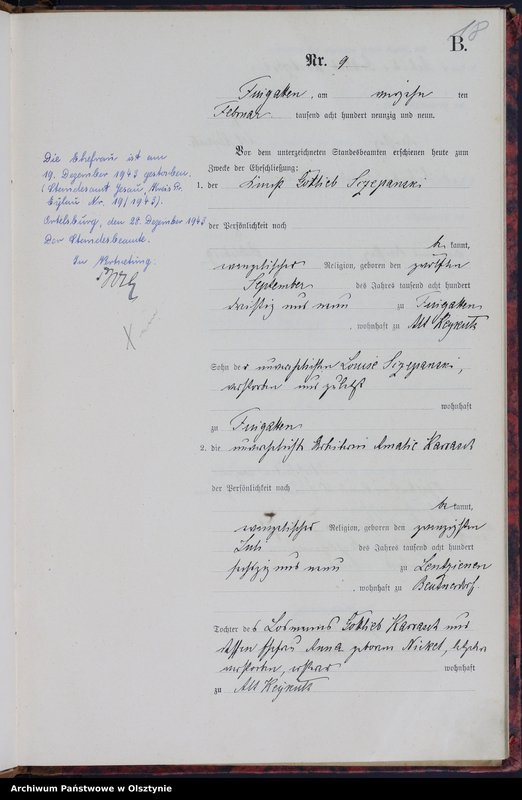 18
B.
Nr. 9
Fingatten, am ten
Februar tausend acht hundert neunzig und neun.
Vor dem unterzeichneten Standesbeamten erschienen heute zum
Zwecke der Eheschließung:
1. der Gottlieb Sczepanski
der Persönlichkeit nach
be kannt,
evangelischer Religion, geboren den zwölften
September des Jahres tausend acht hundert
dreißig und neun zu Fingatten
, wohnhaft zu Alt Keykuth
Sohn der unverehelichten Louise Sczepanski,
verstorben und zuletzt
wohnhaft
zu Fingatten
2. die unverehelichte Arbeiterin Amalie Karrasch
der Persönlichkeit nach
be kannt,
evangelischer Religion, geboren den zwanzigsten
Juli des Jahres tausend acht hundert
sechzig und neun zu Lentzienen
, wohnhaft zu Beutnerdorf
Tochter des Losmanns Gottlieb Karrasch und
dessen Ehefrau Anna geborene Nickel, letztere
verstorben, ersterer wohnhaft
zu Alt Keykuth
Die Ehefrau ist am
19. Dezember 1943 gestorben.
(Standesamt Jesau, Kreis Pr.
Eylau Nr. 19/1943).
Ortelsburg, den 28. Dezember 1943
Der Standesbeamte.
In Vertretung:
Archiwum Państwowe w Olsztynie